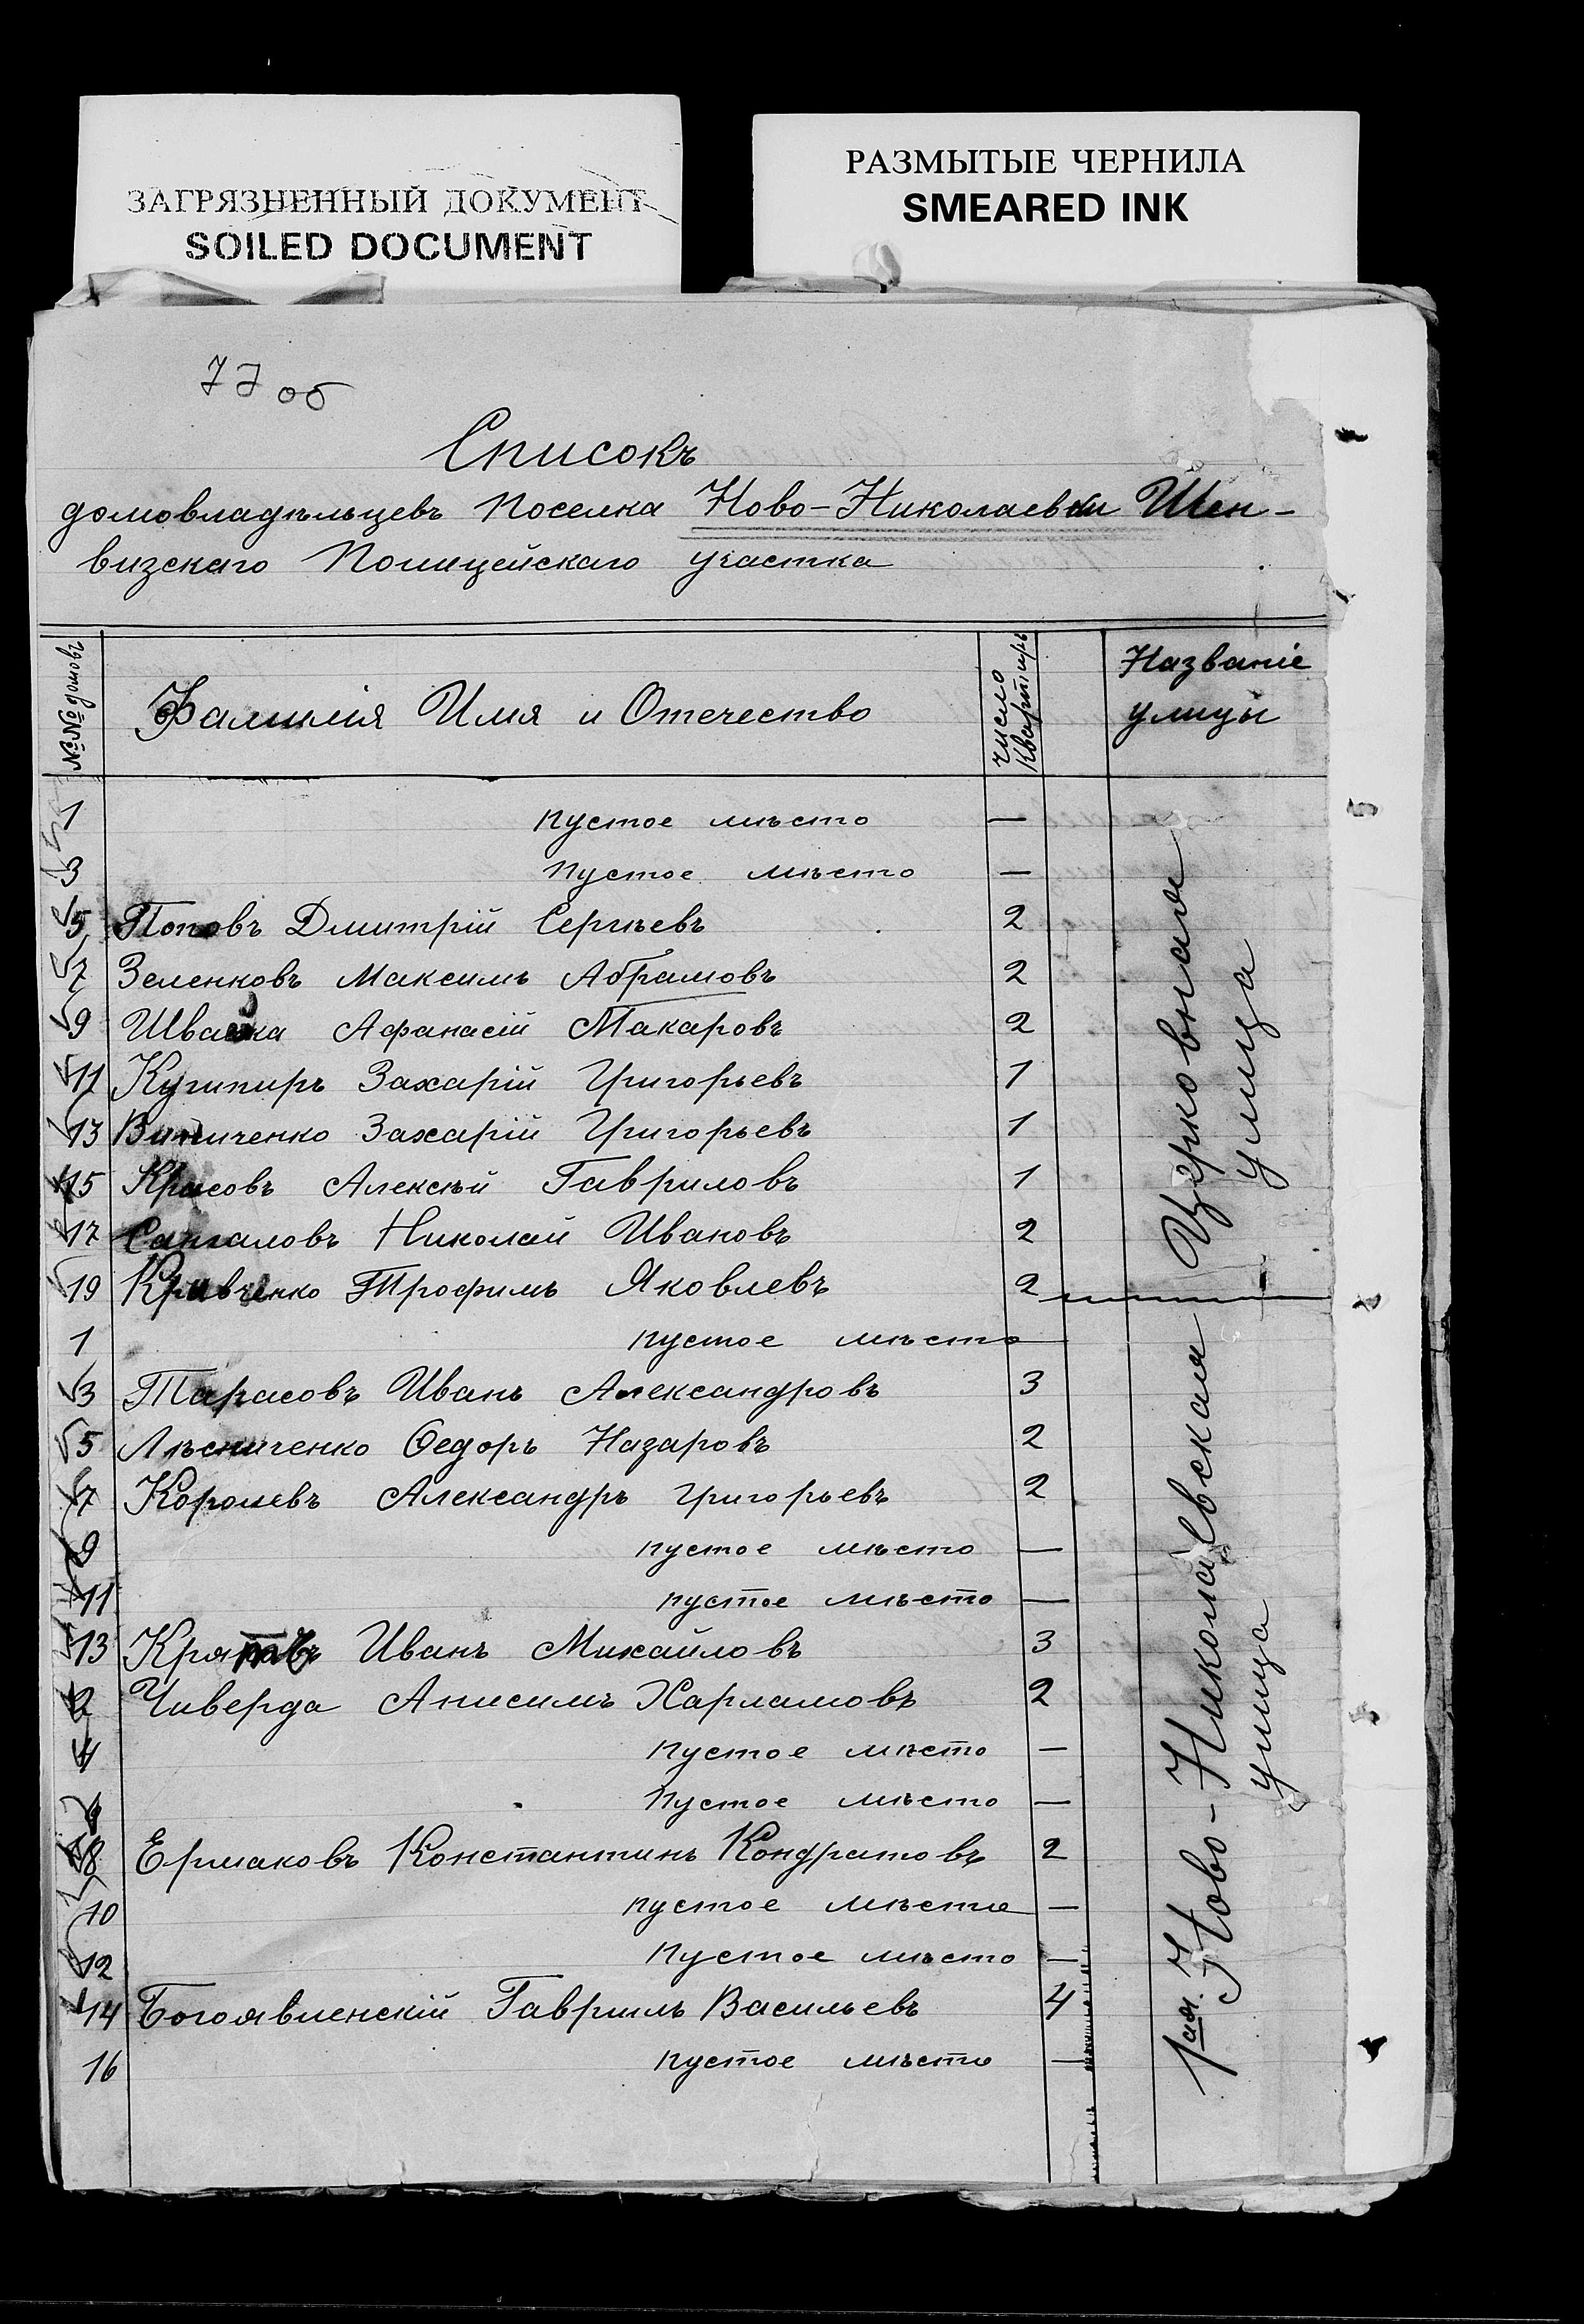 ЗАГРЯЗНЕННЫЙ ДОКУМЕНТ
SOILED DOCUMENT
РАЗМЫТЫЕ ЧЕРНИЛА
SMEARED INK
77 об
Списокъ
домовладѣльцевъ поселка Ново-Николаевки Шен-
визскаго Полицейскаго участка
№№ домовъ Фамилія Имя и Отечество число квартиръ Названіе улицы
1 пустое мѣсто —
3 пустое мѣсто —
5 Поповъ Дмитрій Сергѣевъ 2
7 Зеленковъ Максимъ Абрамовъ 2
9 Афанасій Макаровъ 2
11 Кучипиръ Захарій Григорьевъ 1
13 Виниченко Захарій Григорьевъ 1
15 Красовъ Алексѣй Гавриловъ 1
17 Николай Ивановъ 2
19 Кравченко Трофимъ Яковлевъ 2
Церковная улица
1 пустое мѣсто —
3 Тарасовъ Иванъ Александровъ 3
5 Лѣсниченко Ѳедоръ Назаровъ 2
7 Королевъ Александръ Григорьевъ 2
9 пустое мѣсто —
11 пустое мѣсто —
13 Иванъ Михайловъ 3
2 Чиверда Анисимъ Харламовъ 2
4 пустое мѣсто —
6 пустое мѣсто —
8 Ермаковъ Константинъ Кондратовъ 2
10 пустое мѣсто —
12 пустое мѣсто —
14 Богоявленскій Гавріилъ Васильевъ 4
16 пустое мѣсто —
1ая Ново-Николаевская улица